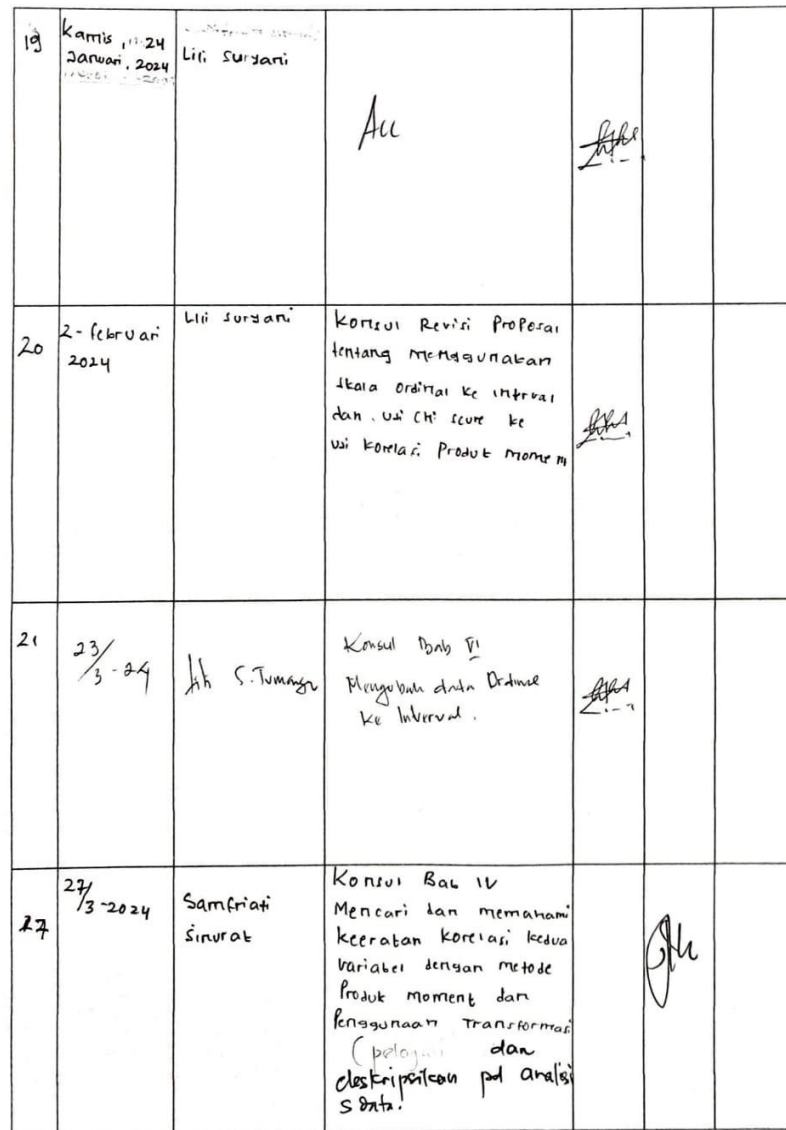 19
Kamis, 24
Januari, 2024
Lili Suryani
Acc
20
2-februari
2024
Lili Suryani
Konsul Revisi Proposal
tentang Menggunakan
skala ordinal ke interval
dan. uji Chi scure ke
uji korelasi Produk momen
21
23/3-24
S. Tumanggor
Konsul Bab VI
Mengubah data Ordinal
ke Interval.
27
27/3-2024
Samfriati
Sinurat
Konsul Bab IV
Mencari dan memahami
keeratan korelasi kedua
variabel dengan metode
Produk moment dan
Penggunaan Transformasi
(pelajari dan
deskripsikan pd analisi
s data.